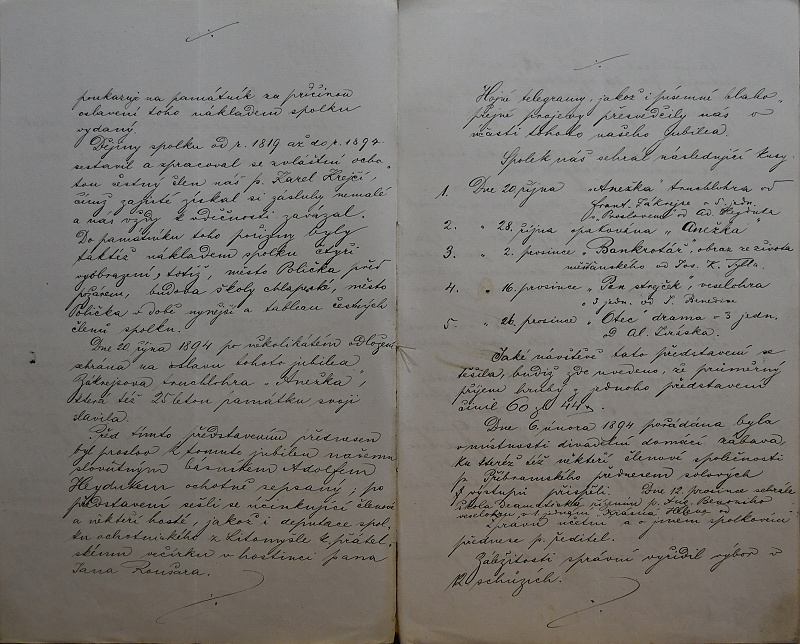 poukazuje na památník za příčinou
oslavení toho nákladem spolku
vydaný.
Dějiny spolku od r. 1819 až do r. 1894
sestavil a spracoval se zvláštní ocho-
tou čestný člen náš p. Karel Krejčí,
čímž zajisté získal si zásluhy nemalé
a nás vždy k vděčnosti zavázal.
Do památníku toho pořízeny byly
taktéž nákladem spolku čtyři
vyobrazení, totiž, město Polička před
požárem, budova školy chlapecké, město
Polička v době nynější a tableau čestných
členů spolku.
Dne 20. října 1894 po několikátém odložení
sehrána na oslavu tohoto jubilea
Zákrejsova truchlohra „Anežka“,
která též 25letou památku svoji
slavila.
Před tímto představením přednesen
byl proslov k tomuto jubileu naším
slovutným básníkem Adolfem
Heydukem ochotně sepsaný, po
představení sešli se účinkující členové
a někteří hosté, jakož i deputace spol-
ku ochotnického z Litomyšle k přátel-
skému večírku v hostinci pana
Jana Roušara.
Hojné telegramy, jakož i písemné blaho-
přejné projevy přesvědčily nás o
účasti tohoto našeho jubilea.
Spolek náš sehrál následující kusy.
1. Dne 20 října „Anežka“ truchlohra od
Frant. Zákrejse o 5. jedn.
s „Proslovem“ od Ad. Hejduka
2. „ 28. října opětována „Anežka“
3. „ 2. prosince „Bankrotář“, obraz ze života
měšťanského od Jos. K. Tylla.
4. „ 16. prosince „Pan strejček“, veselohra
o 3 jedn. od J. Benedixe
5. „ 26. prosince „Otec“ drama o 3 jedn.
od Al. Jiráska.
Jaké návštěvě tato představení se
těšila, budiž zde uvedeno, že průměrný
příjem hrubý z jednoho představení
činil 60 zl 44 k.
Dne 6. února 1894 pořádána byla
v místnosti divadelní domácí zábava,
ku kteréž též někteří členové společnosti
p. Příbramského přednesem sólových
výstupů přispěli. Dne 12. prosince sehrála
škola
veselohru o 1 jednání
Zprávu účetní a o jiném spolkovém
přednese p. ředitel.
Záležitosti správní vyřídil výbor v
12 schůzích.